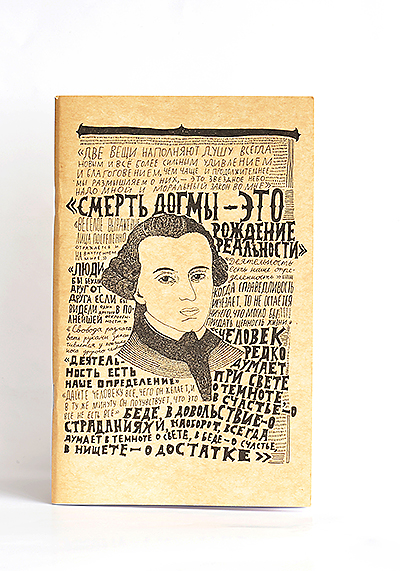 «ДВЕ ВЕЩИ НАПОЛНЯЮТ ДУШУ ВСЕГДА
НОВЫМ И ВСЕ БОЛЕЕ СИЛЬНЫМ УДИВЛЕНИЕМ
И БЛАГОГОВЕНИЕМ, ЧЕМ ЧАЩЕ И ПРОДОЛЖИТЕЛЬНЕЕ
МЫ РАЗМЫШЛЯЕМ О НИХ, – ЭТО ЗВЕЗДНОЕ НЕБО
НАДО МНОЙ И МОРАЛЬНЫЙ ЗАКОН ВО МНЕ»
«СМЕРТЬ ДОГМЫ – ЭТО
РОЖДЕНИЕ
РЕАЛЬНОСТИ»
«ВЕСЕЛОЕ ВЫРАЖЕНИЕ
ЛИЦА ПОСТЕПЕННО
ОТРАЖАЕТСЯ И
НА ВНУТРЕННЕМ
МИРЕ»
«ЛЮДИ
БЫ БЕЖАЛИ
ДРУГ ОТ
ДРУГА, ЕСЛИ БЫ
ВИДЕЛИ
В ПО-
ЛНЕЙШЕЙ
«Свобода
«Деятельность
есть наше опре-
деленность»
КОГДА СПРАВЕДЛИВОСТЬ
ИСЧЕЗАЕТ, ТО НЕ ОСТАЕТСЯ
НИЧЕГО, ЧТО МОГЛО БЫ
ПРИДАТЬ ЦЕННОСТЬ ЖИЗНИ»
«ДЕЯТЕЛЬ-
НОСТЬ ЕСТЬ
НАШЕ ОПРЕДЕЛЕНИЕ»
«ДАЙТЕ ЧЕЛОВЕКУ ВСЕ, ЧЕГО ОН ЖЕЛАЕТ, И
В ТУ ЖЕ МИНУТУ ОН ПОЧУВСТВУЕТ, ЧТО ЭТО
ВСЕ НЕ ЕСТЬ ВСЕ»
ЧЕЛОВЕК
РЕДКО
ДУМАЕТ
ПРИ СВЕТЕ
О ТЕМНОТЕ,
В СЧАСТЬЕ – О
БЕДЕ, В ДОВОЛЬСТВИЕ – О
СТРАДАНИЯХ И, НАОБОРОТ, ВСЕГДА
ДУМАЕТ В ТЕМНОТЕ О СВЕТЕ, В БЕДЕ – О СЧАСТЬЕ,
В НИЩЕТЕ – О ДОСТАТКЕ»